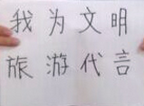 我为文明
旅游代言